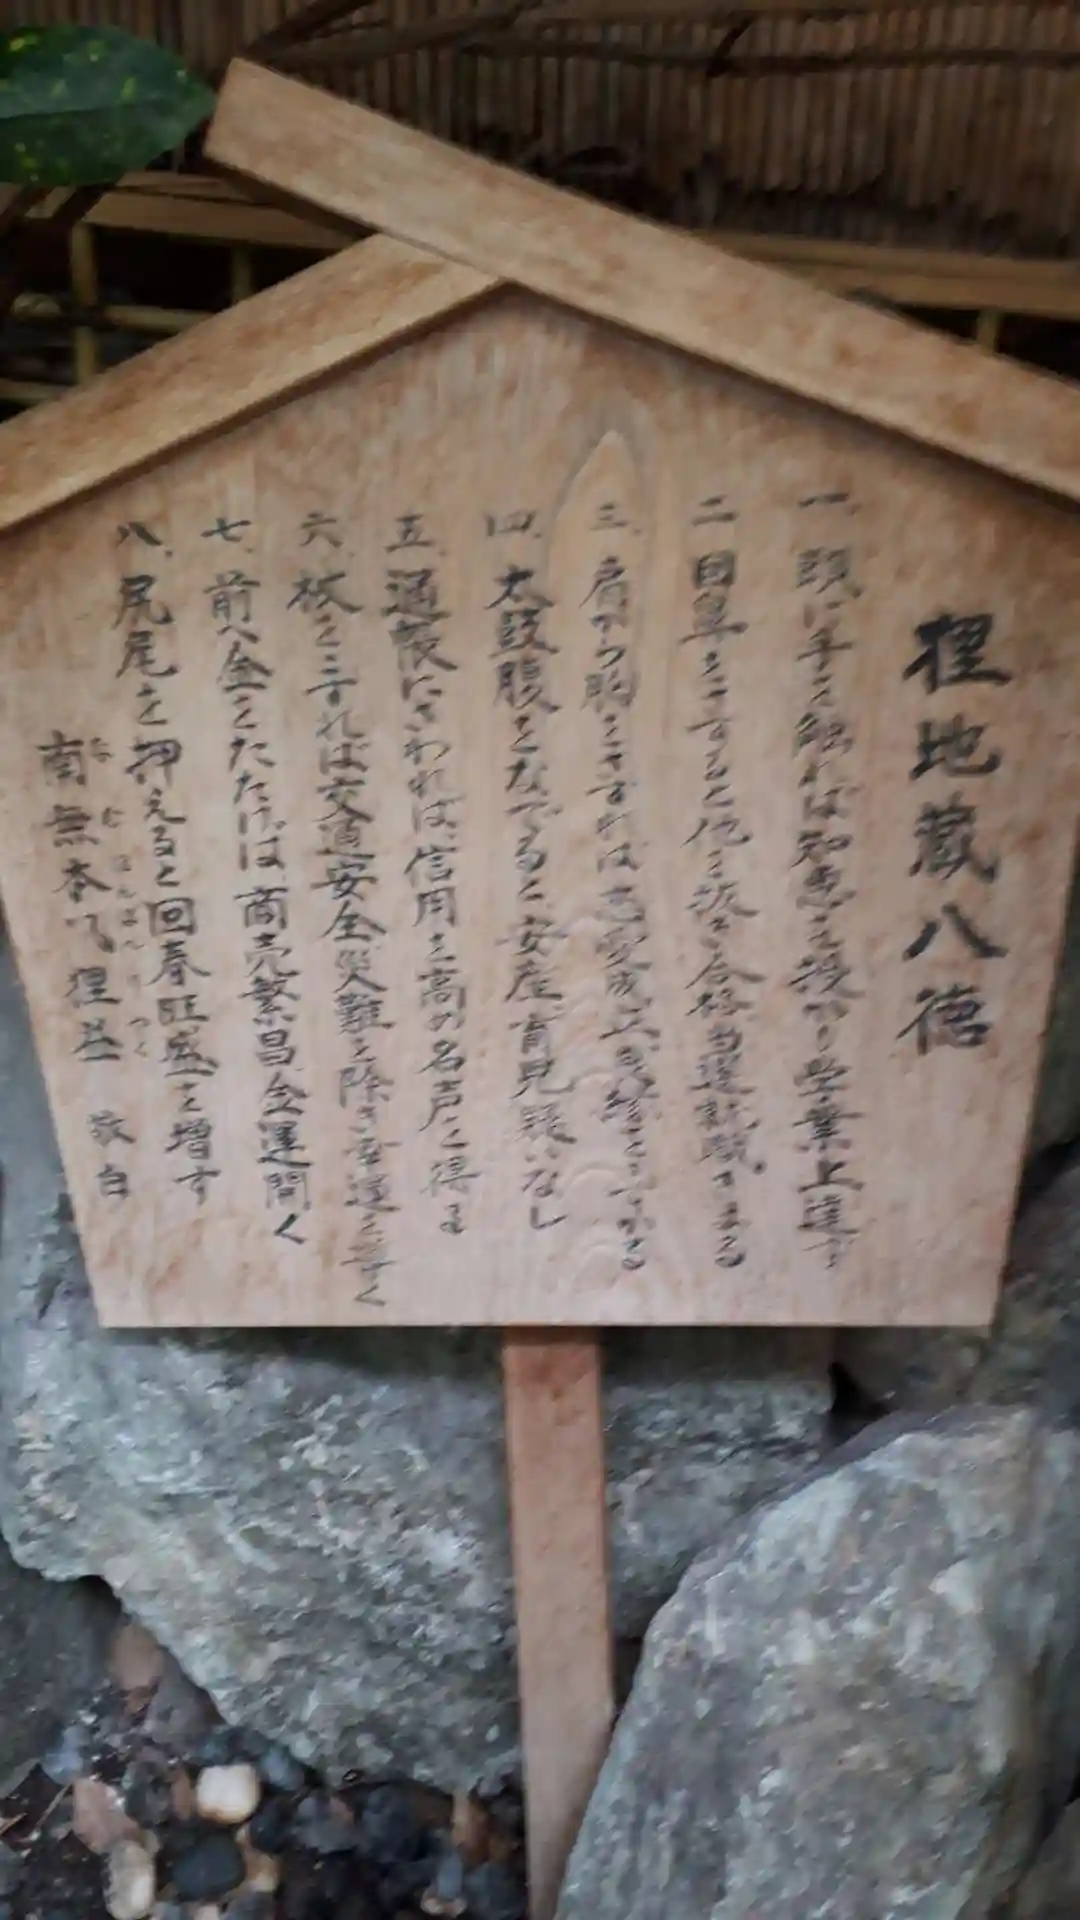 狸地蔵八徳
一、頭に手を触れば知恵を授かり学業上達す
二、目鼻をさすると他を抜き合格当選就職
三、肩から胸をさすれば恋愛成
四、太鼓腹をなでると安産、育児疑いなし
五、通帳にさわれば、信用を高め名声を得る
六、板をこすれば交通安全災難を除き幸運を
七、前へ金をたたけば、商売繁昌、金運開く
八、尻尾を押えると回春旺盛を増す
南無 狸 敬白